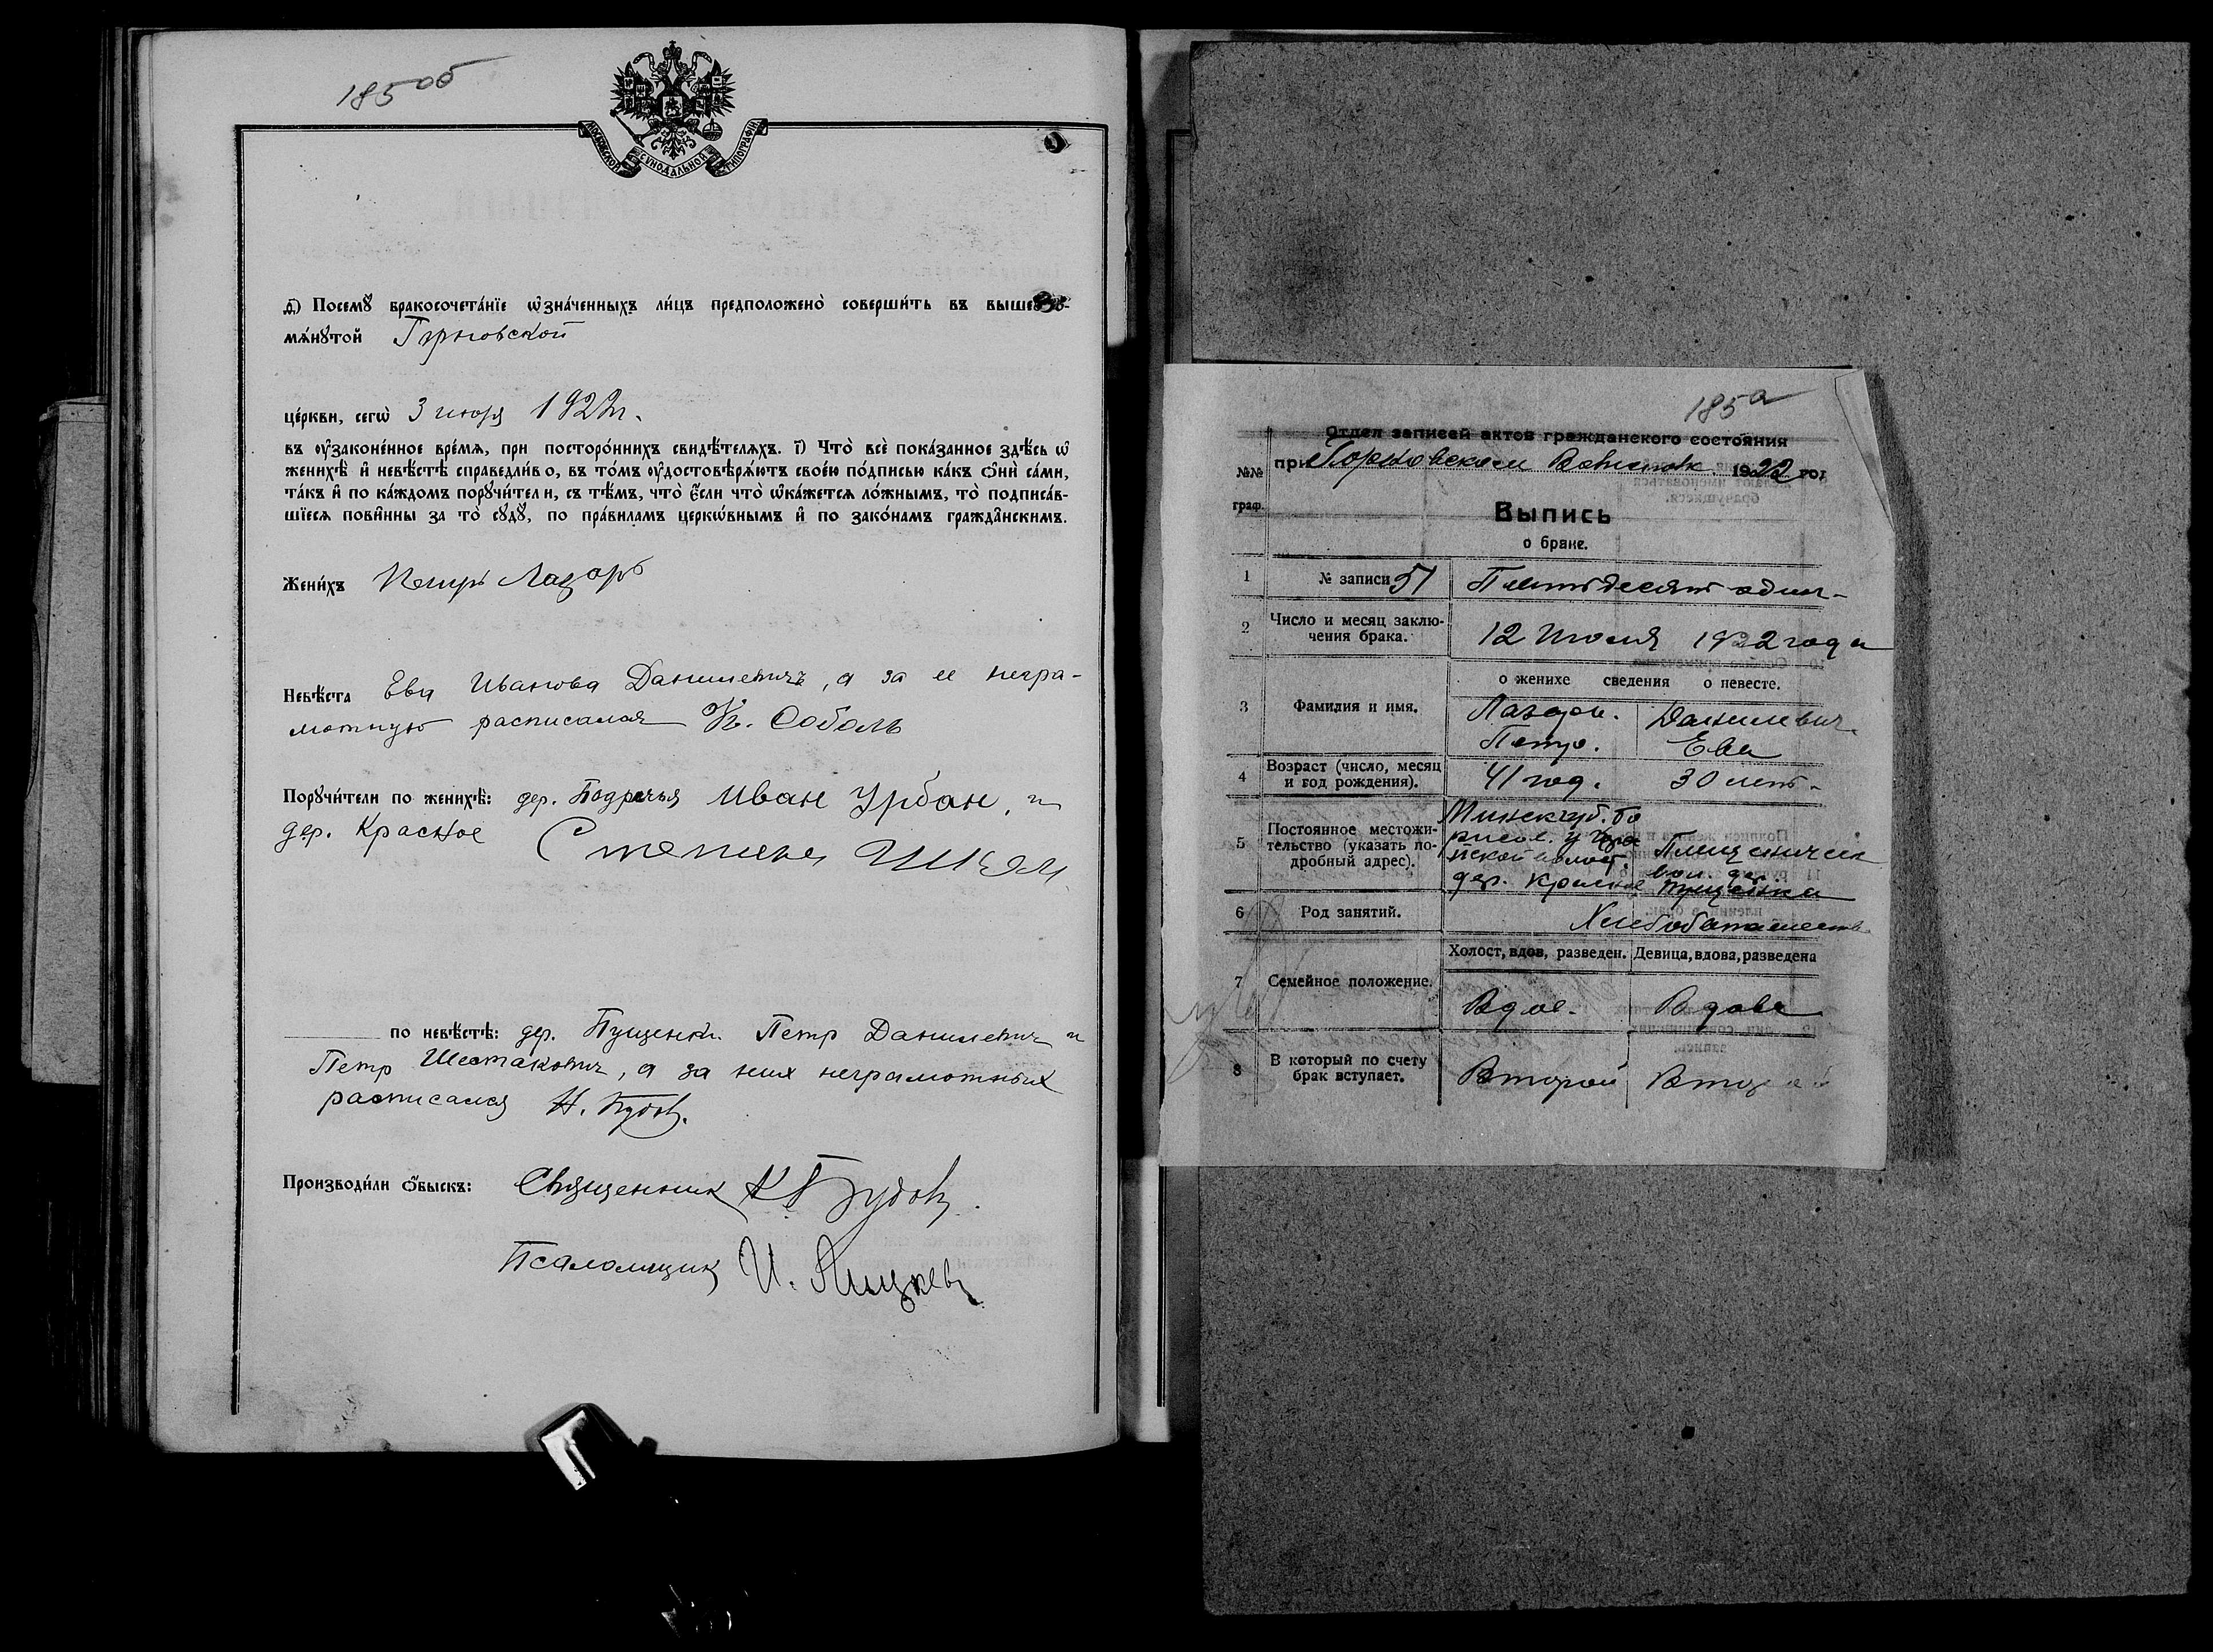 185 об
МОСКОВСКОЙ СѴНОДАЛЬНОЙ ТИПОГРАФІИ
д҃) Посемꙋ̀ бракосочета́нїе ѡ҆зна́ченныхъ ли́цъ предположено̀ соверши́ть въ вышеꙋпо-
мѧ́нꙋтой Горновской
це́ркви, сегѡ̀ 3 июля 1922 г.
въ ᲂу҆законе́нное вре́мѧ, при посторо́ннихъ свидѣ́телѧхъ. і҃) Что̀ всѐ пока́занное здѣ́сь ѡ҆
женихѣ̀ и҆ невѣ́стѣ справедли́во, въ то́мъ ᲂу҆достовѣрѧ́ютъ свое́ю по́дписью ка́къ ѻ҆нѝ са́ми,
та́къ и҆ по ка́ждомъ порꙋчи́тели, съ тѣ́мъ, что̀ є҆́сли что̀ ѡ҆ка́жетсѧ ло́жнымъ, то̀ подписа́в-
шїесѧ пови́нны за то̀ сꙋдꙋ̀, по пра́виламъ церкѡ́внымъ и҆ по зако́намъ гражда́нскимъ.
Жени́хъ Петръ Лазаръ
Невѣ́ста Ева Иванова Данилевичъ, а за ее негра-
мотную расписался К. Соболь
Порꙋчи́тели по женихѣ̀: дер. Подречья Иван Урбан, и
дер. Красное Степан
по невѣ́стѣ: дер. Пущенки Петр Данилевич и
Петр Шестакович, а за них неграмотных
расписался Н. Будов.
Производи́ли ѻ҆́быскъ: Священник Будов.
Псаломщик И.
185 а
Отдел записей актов гражданского состояния
при Горновском Волисполк. 1922 год
№№ граф.
Выпись
о браке.
1 № записи 51 Пятьдесят один
2 Число и месяц заклю-
чения брака. 12 Июля 1922 года
о женихе сведения о невесте.
3 Фамилия и имя. Лазарь Данилевич
Петр. Ева
4 Возраст (число, месяц
и год рождения). 41 год. 30 лет.
5 Постоянное местожи-
тельство (указать по-
дробный адрес). Минск губ. Бо
рисов. у
волост. Плещенич
дер. Красное вол. дер. Пущенки
6 Род занятий. Хлебопашество
Холост, вдов, разведен. Девица, вдова, разведена
7 Семейное положение. Вдов. Вдова
8 В который по счету
брак вступает. Второй Второй